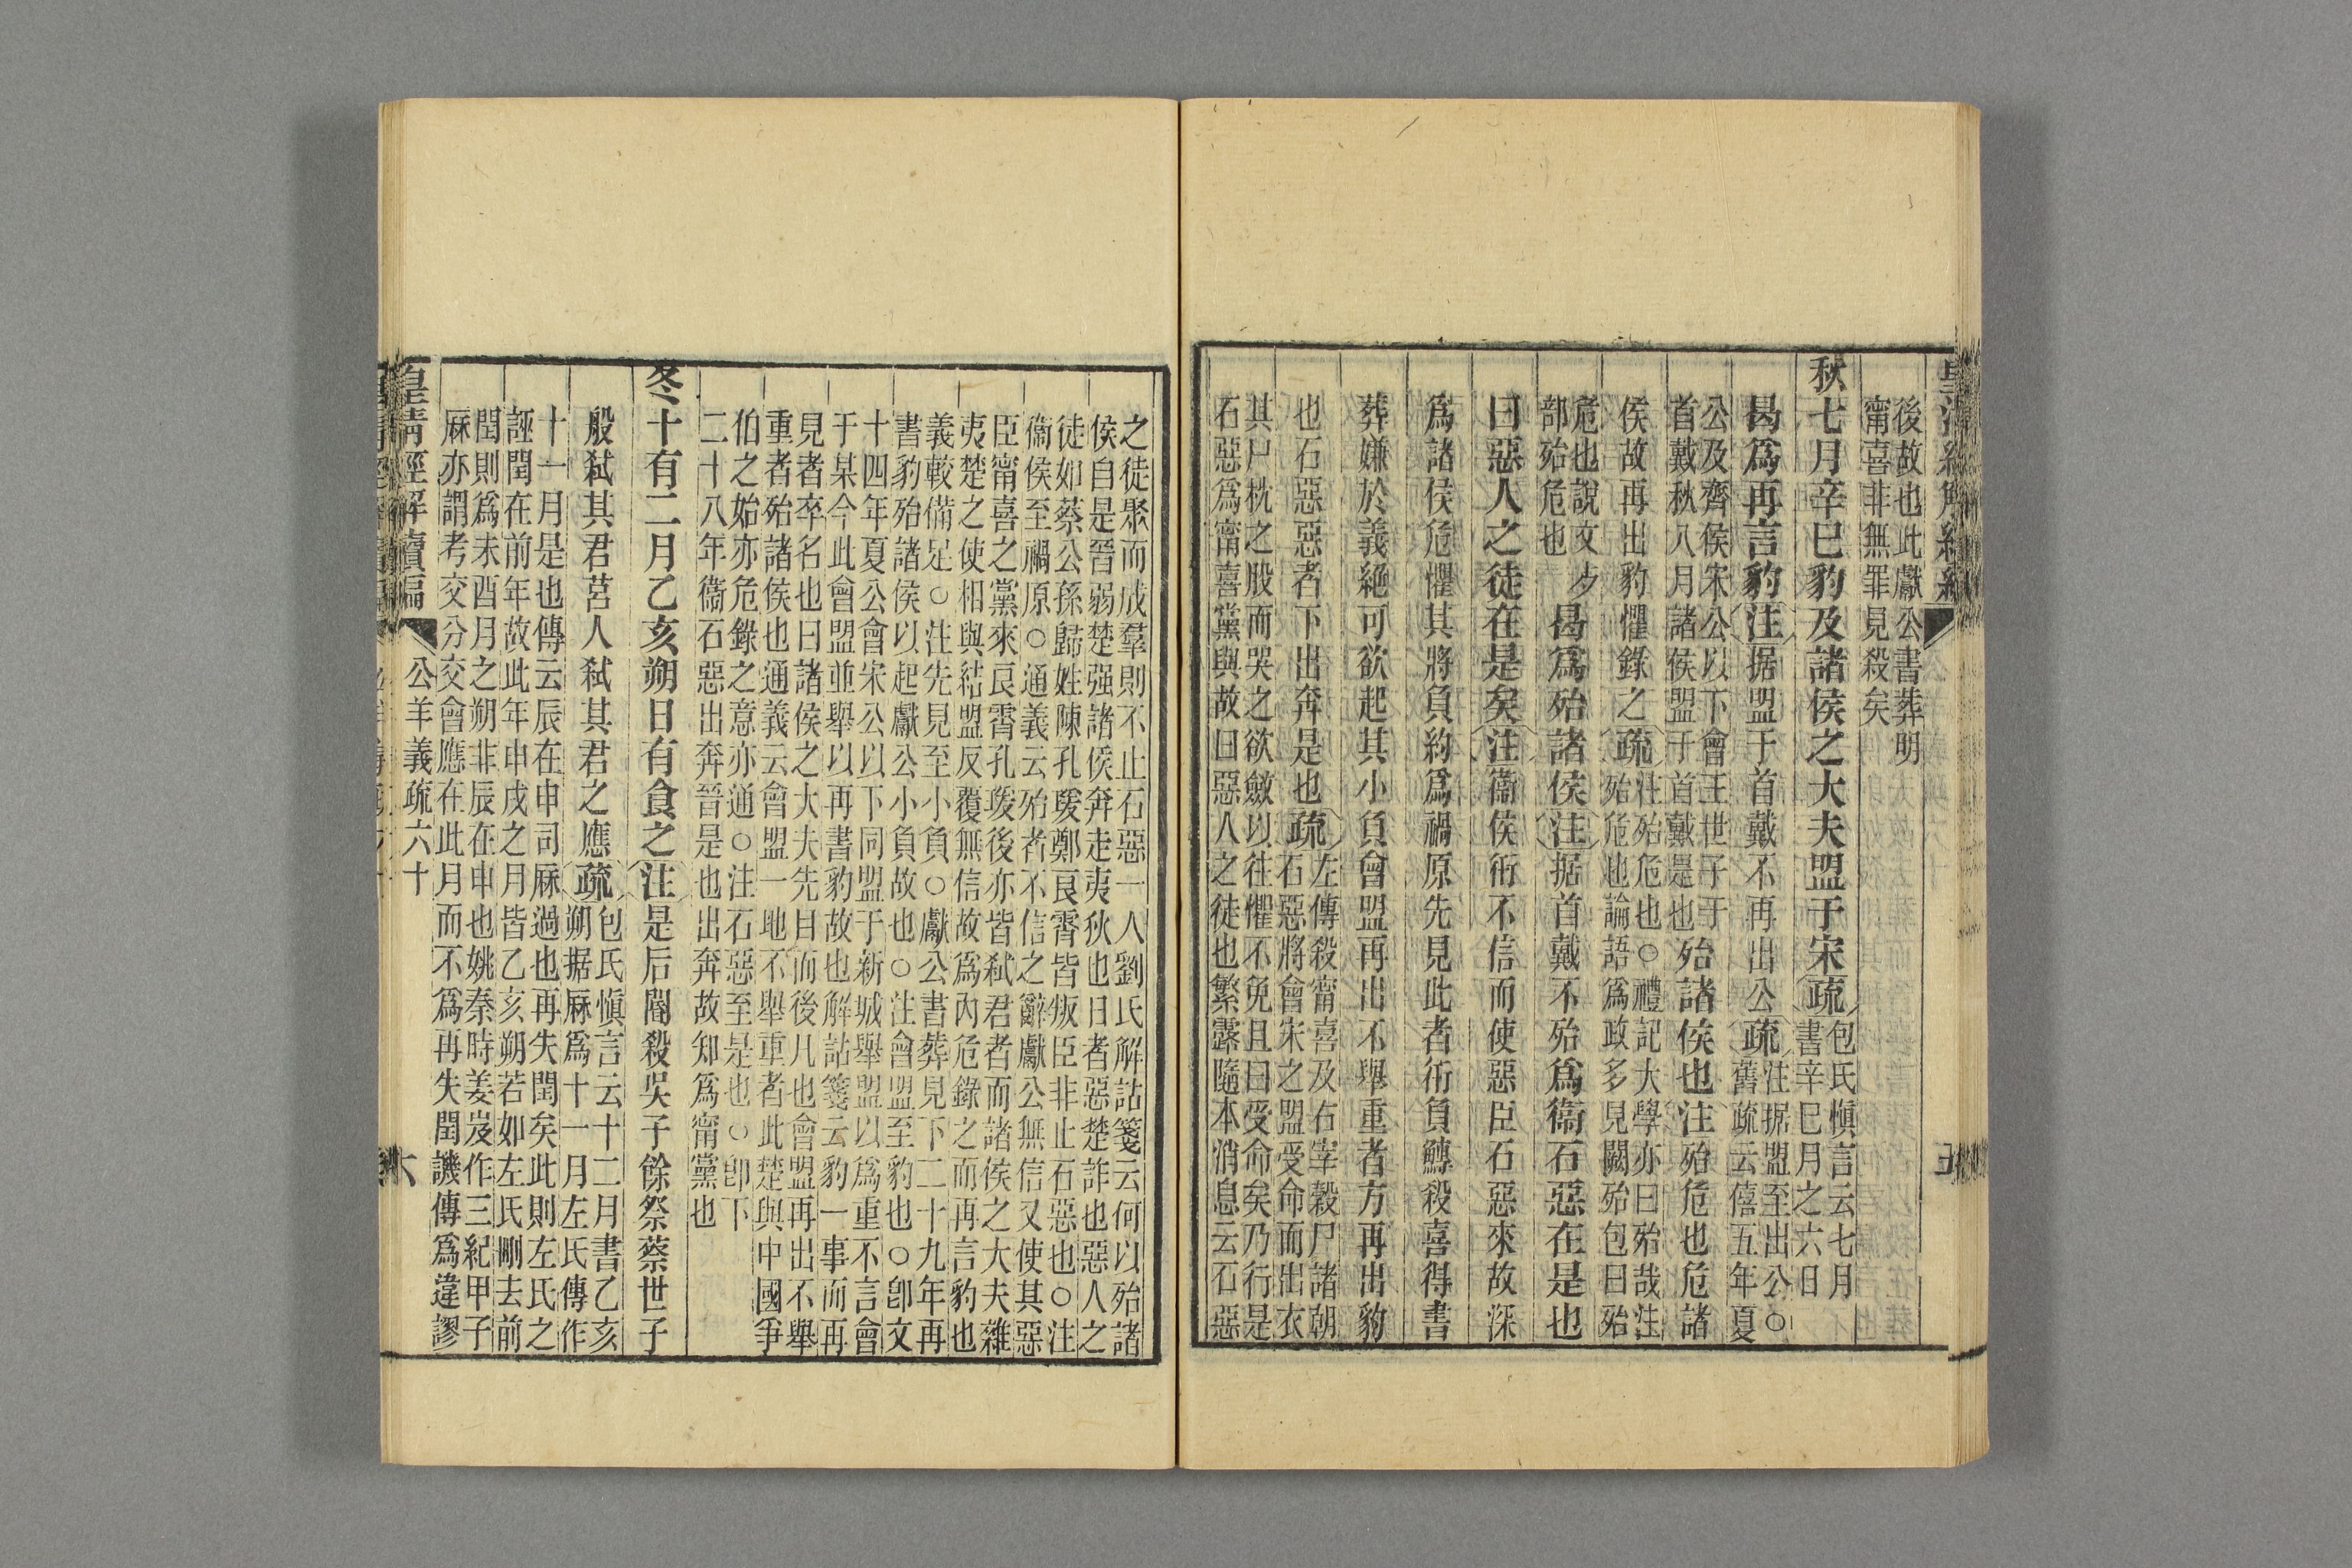 後故也此獻公書葬明
甯喜非無罪見殺矣
秋七月辛巳豹及諸侯之大夫盟于宋疏
包氏愼言云七月
書辛巳月之六日
曷爲再言豹注据盟于首戴不再出公疏
注据盟至出公○
舊疏云僖五年夏
公及齊侯宋公以下會王世子于
首戴秋八月諸侯盟于首戴是也
殆諸侯也注殆危也危諸
侯故再出豹懼錄之疏
注殆危也○禮記大學亦曰殆哉注
殆危也論語爲政多見闕殆包曰殆
危也說文歺
部殆危也
曷爲殆諸侯注据首戴不殆爲衞石惡在是也
曰惡人之徒在是矣注衞侯衎不信而使惡臣石惡來故深
爲諸侯危懼其將負約爲禍原先見此者衎負鱄殺喜得書
葬嫌於義絕可欲起其小負會盟再出不舉重者方再出豹
也石惡惡者下出奔是也疏
左傳殺甯喜及右宰穀尸諸朝
石惡將會宋之盟受命而出衣
其尸枕之股而哭之欲斂以往懼不免且曰受命矣乃行是
石惡爲甯喜黨與故曰惡人之徒也繁露隨本消息云石惡
之徒聚而成羣則不止石惡一人劉氏解詁箋云何以殆諸
侯自是晉弱楚强諸侯奔走夷狄也曰者惡楚詐也惡人之
徒如蔡公孫歸姓陳孔瑗鄭良霄皆叛臣非止石惡也○注
衞侯至禍原○通義云殆者不信之辭獻公無信又使其惡
臣甯喜之黨來良霄孔瑗後亦皆弒君者而諸侯之大夫雜
夷楚之使相與結盟反覆無信故爲內危錄之而再言豹也
義較備足○注先見至小負○獻公書葬見下二十九年再
書豹殆諸侯以起獻公小負故也○注會盟至豹也○卽文
十四年夏公會宋公以下同盟于新城舉盟以爲重不言會
于某今此會盟並舉以再書豹故也解詁箋云豹一事而再
見者卒名也曰諸侯之大夫先目而後凡也會盟再出不舉
重者殆諸侯也通義云會盟一地不舉重者此楚與中國爭
伯之始亦危錄之意亦通○注石惡至是也○卽下
二十八年衞石惡出奔晉是也出奔故知爲甯黨也
冬十有二月乙亥朔日有食之注是后閽殺吳子餘祭蔡世子
般弒其君莒人弒其君之應疏
包氏愼言云十二月書乙亥
朔据厤爲十一月左氏傳作
十一月是也傳云辰在申司厤過也再失閏矣此則左氏之
誣閏在前年故此年申戌之月皆乙亥朔若如左氏剛去前
閏則爲未酉月之朔非辰在申也姚秦時姜岌作三紀甲子
厤亦謂考交分交會應在此月而不爲再失閏譏傳爲違謬
皇淸經解續編
公羊義疏六十
六